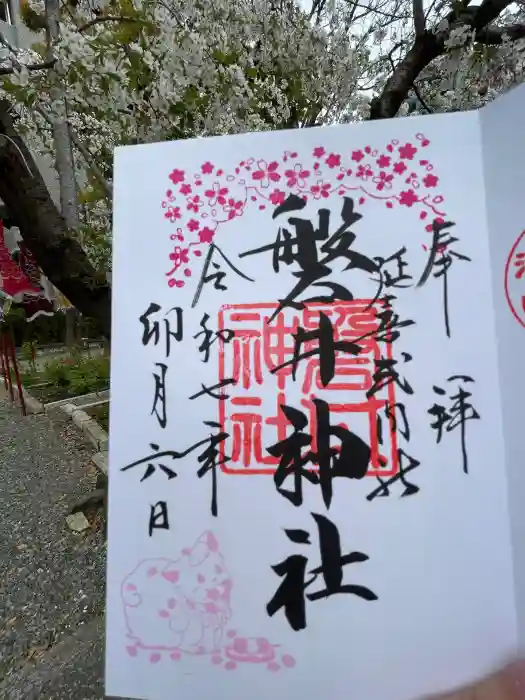 奉拝
延喜式内社
磐井神社
磐井神社
令和七年
卯月六日